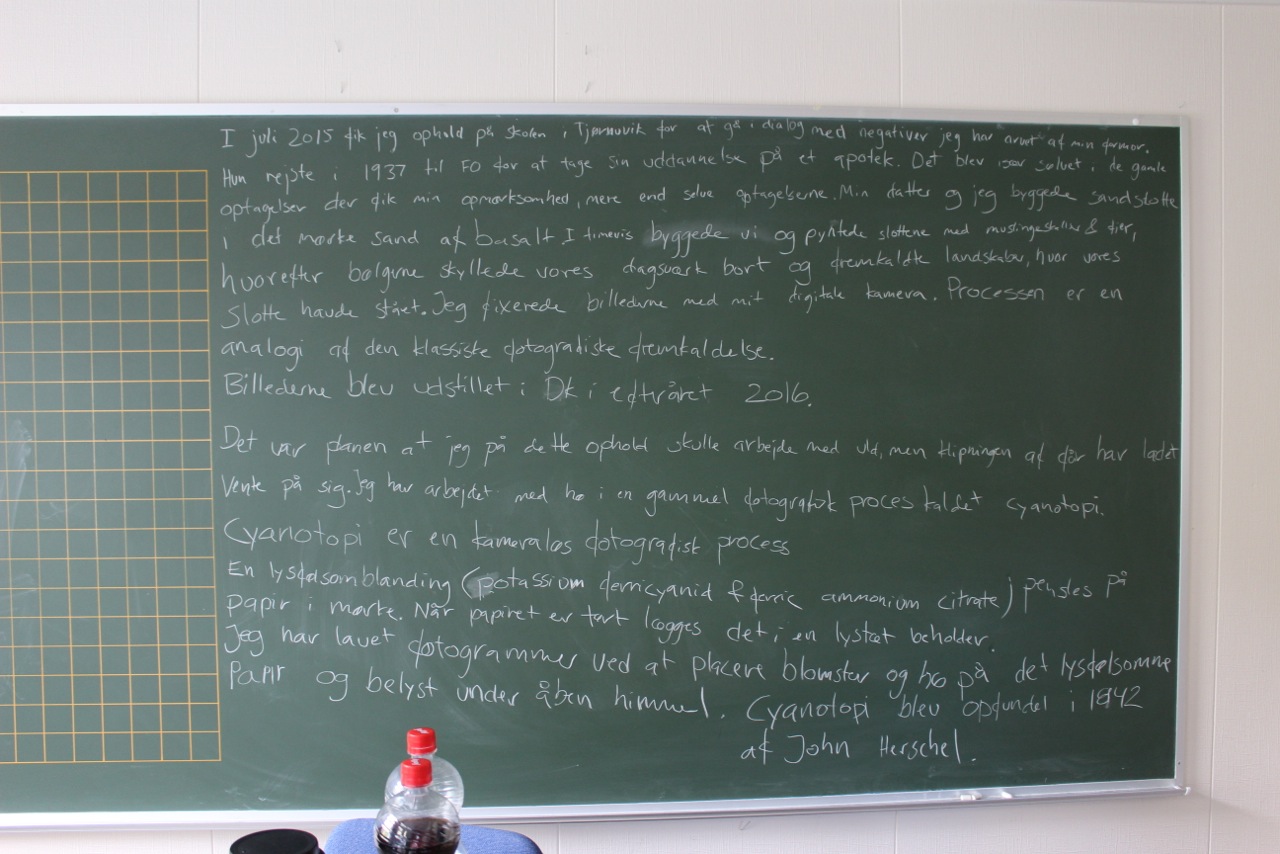 I juli 2015 fik jeg ophold på skolen i Tjørnuvik for at gå i dialog med negativer jeg har arvet af min farmor.
Hun rejste i 1937 til FO for at tage sin uddannelse på et apotek. Det blev især sølvet i de gamle
optagelser der fik min opmærksomhed, mere end selve optagelserne. Min datter og jeg byggede sandslotte
i det mørke sand af basalt. I timevis byggede vi og pyntede slottene med muslingeskaller & fjer,
hvorefter bølgerne skyllede vores dagsværk bort og fremkaldte landskaber, hvor vores
slotte havde stået. Jeg fixerede billederne med mit digitale kamera. Processen er en
analogi af den klassiske fotografiske fremkaldelse.
Billederne blev udstillet i DK i efteråret 2016.
Det var planen at jeg på dette ophold skulle arbejde med uld, men klipningen af får har ladet
vente på sig. Jeg har arbejdet med hø i en gammel fotografisk proces kaldet cyanotopi.
Cyanotopi er en kameraløs fotografisk process
En lysfølsomblanding (potassium ferricyanid & ferric ammonium citrate) pensles på
papir i mørke. Når papiret er tørt lægges det i en lystæt beholder.
Jeg har lavet fotogrammer ved at placere blomster og hø på det lysfølsomme
Papir og belyst under åben himmel. Cyanotopi blev opfundet i 1942
af John Herschel.